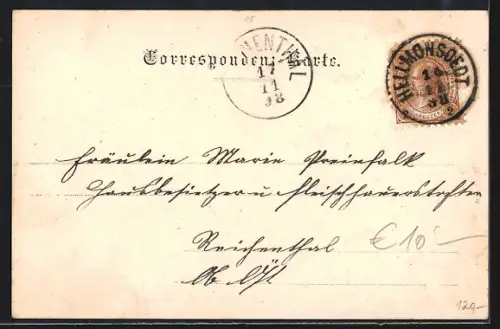 Correspondenz-Karte.
HENTHAL
17
11
98
HELLMONSOEDT
16
11
98
Fräulein Marie Preinfalk
Hausbesitzer u Fleischhauerstochter
Reichenthal
€ 10,-
Ob Öst.
120,-